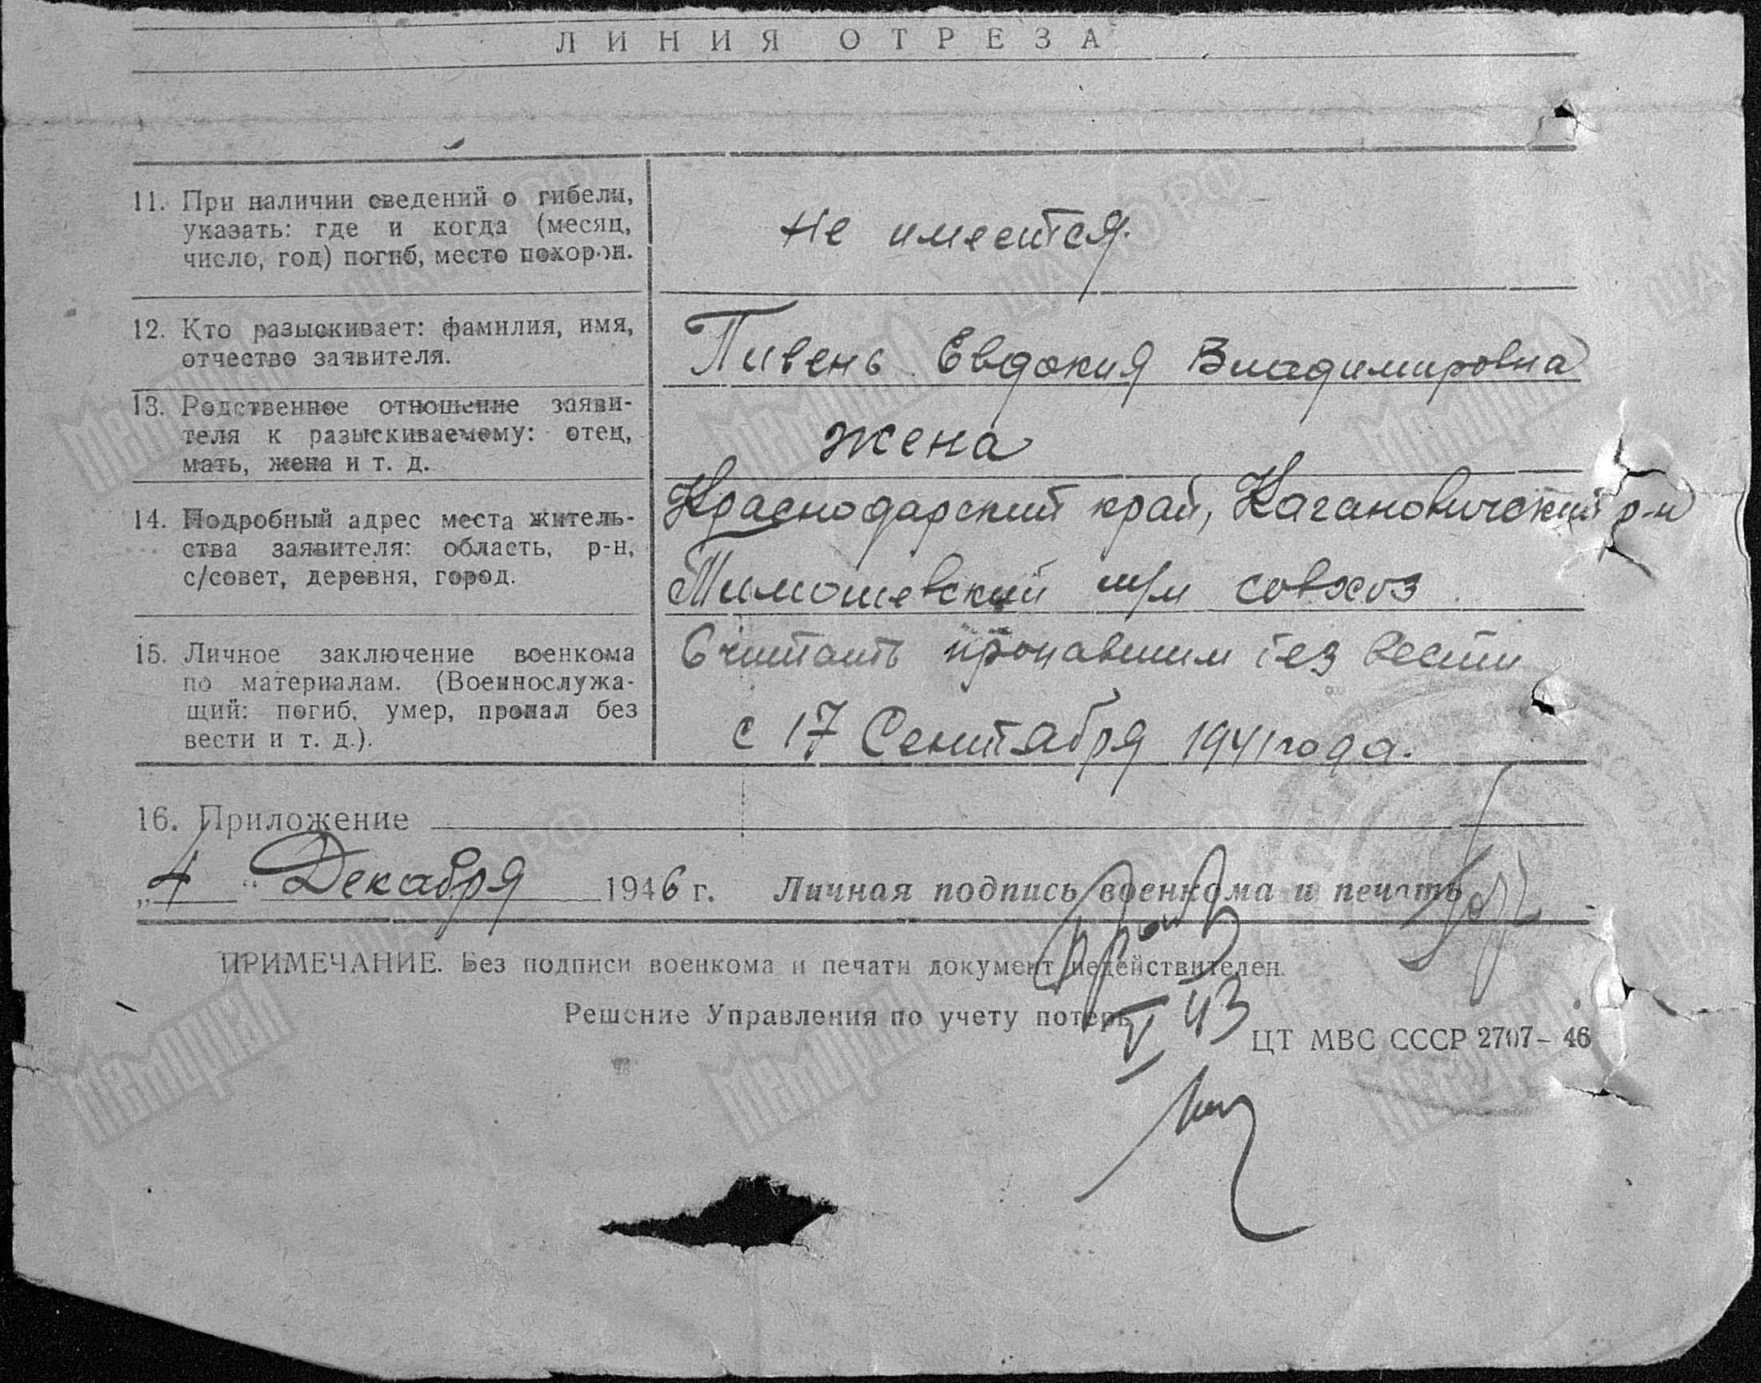 ЛИНИЯ ОТРЕЗА
11. При наличии сведений о гибели,
указать: где и когда (месяц,
число, год) погиб, место похорон.
Не имеется.
12. Кто разыскивает: фамилия, имя,
отчество заявителя.
Пивень Евдокия Владимировна
13. Родственное отношение заяви-
теля к разыскиваемому: отец,
мать, жена и т. д.
жена
14. Подробный адрес места житель-
ства заявителя: область, р-н,
с/совет, деревня, город.
Краснодарский край, Кагановичский р-н
Тимошевский м/м совхоз
15. Личное заключение военкома
по материалам. (Военнослужа-
щий: погиб, умер, пропал без
вести и т. д.).
Считать пропавшим без вести
с 17 Сентября 1941 года.
16. Приложение
„4“ Декабря 1946 г. Личная подпись военкома и печать
ПРИМЕЧАНИЕ. Без подписи военкома и печати документ недействителен.
Решение Управления по учету потерь
V 43
ЦТ МВС СССР 2707–46
Мемориал
ЦАМО РФ